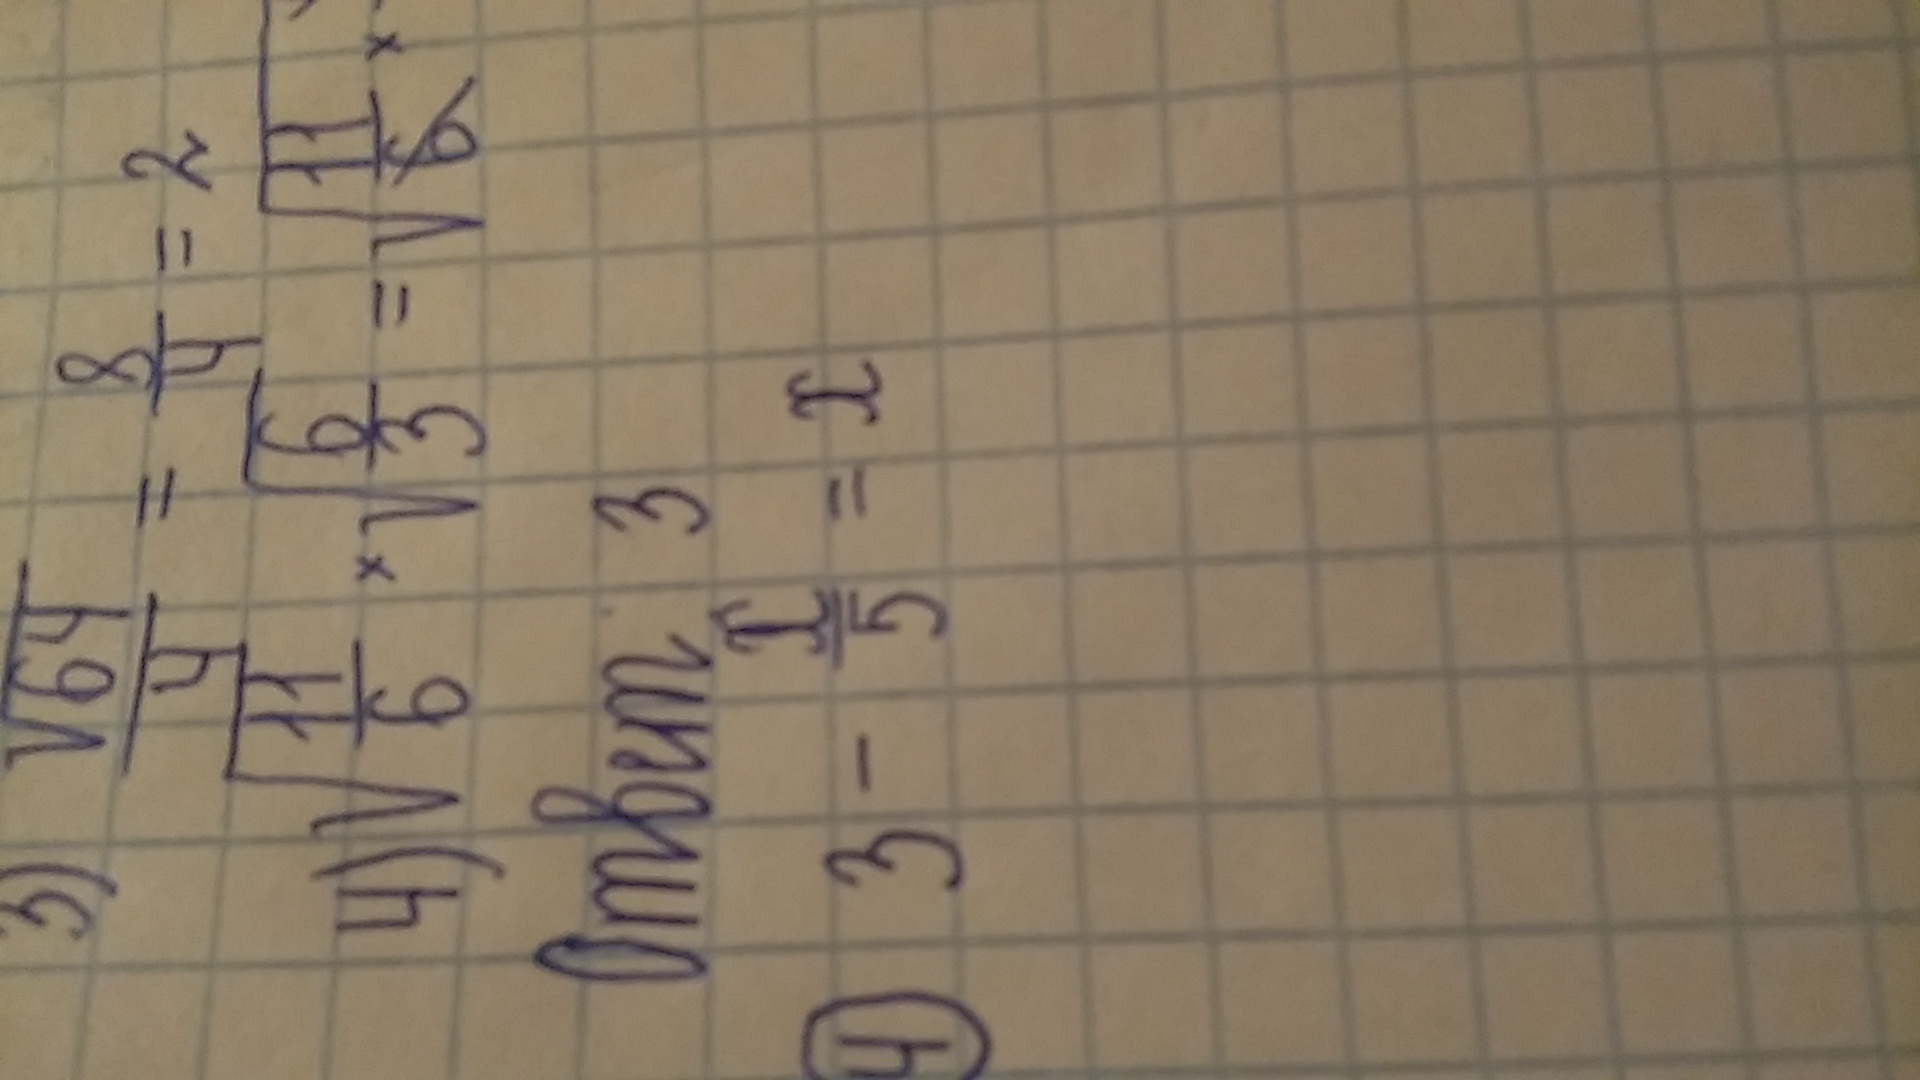 3) √64/4 = 8/4 = 2
4) √11/6 × √6/3 = √11/6 ×
Ответ 3
4 3 - x/5 = x